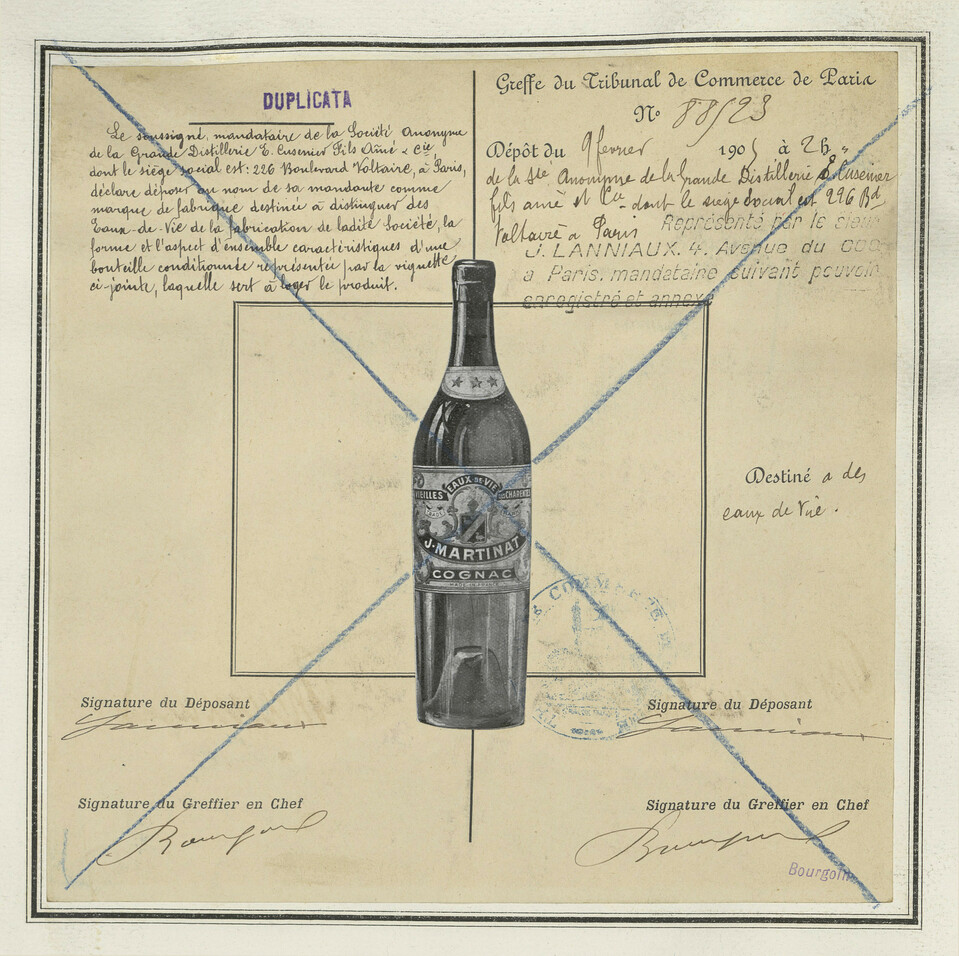 DUPLICATA
Le soussigné, mandataire de la Société Anonyme
de la Grande Distillerie E. Cusenier Fils Aîné & Cie,
dont le siège social est: 226 Boulevard Voltaire, à Paris,
déclare déposer au nom de sa mandante comme
marque de fabrique destinée à distinguer des
Eaux-de-Vie de la fabrication de ladite Société, la
forme et l'aspect d'ensemble caractéristiques d'une
bouteille conditionnée représentée par la vignette
ci-jointe, laquelle sert à loger le produit.
Greffe du Tribunal de Commerce de Paris
No 88523
Dépôt du 9 février 1905 à 2h "
de la Ste Anonyme de la Grande Distillerie E. Cusenier
fils aîné et Cie dont le siège social est 226 Bd
Voltaire à Paris Représenté par le sieur
J. LANNIAUX. 4. Avenue du COQ
a Paris. mandataire suivant pouvoir
enregistré et annexé
EAUX-DE-VIE
VIEILLES DES CHARENTES
J. MARTINAT
COGNAC
Destiné a des
eaux de vie.
COMMERCE DE
Signature du Déposant
Lanniaux
Signature du Déposant
Lanniaux
Signature du Greffier en Chef
Bourgoin
Signature du Greffier en Chef
Bourgoin
Bourgoin